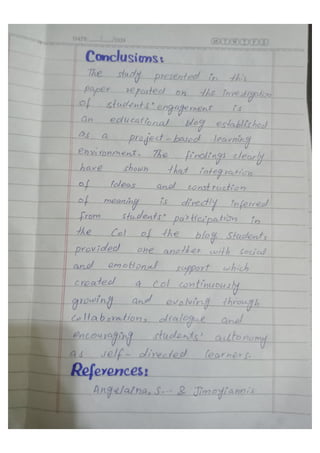 DATE: / /20
M T W T F S S
Conclusions:
The study presented in this
paper reported on the investigation
of students' engagement is
an educational blog established
as a project-based learning
environment. The findings clearly
have shown that integration
of ideas and construction
of meaning is directly inferred
from students' participation in
the CoI of the blog Students
provided one another with social
and emotional support which
created a CoI continuously
growing and evolving through
collaboration, dialogue and
encouraging students' autonomy
as self-directed learners.
References:
Angelaina, S.. & Jimoyiannis